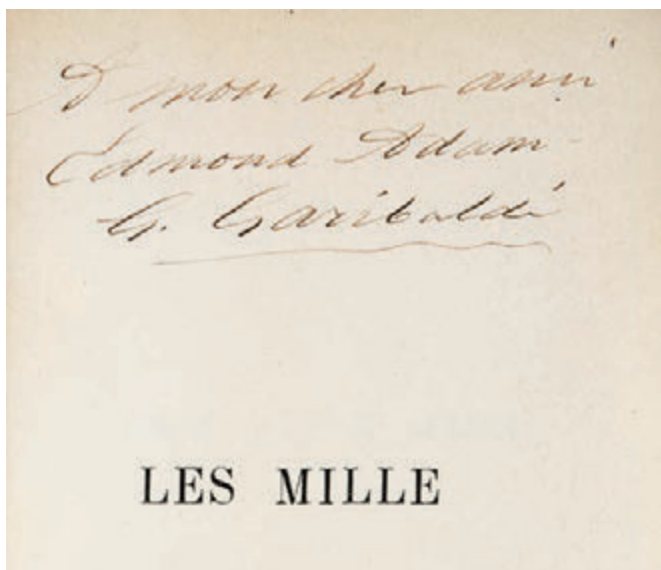 A mon cher ami
Edmond Adam
G. Garibaldi
LES MILLE